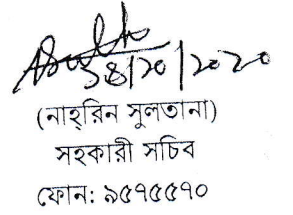 ১৪/১০/২০২০
(নাহ্‌রিন সুলতানা)
সহকারী সচিব
ফোন: ৯৫৭৫৫৭০